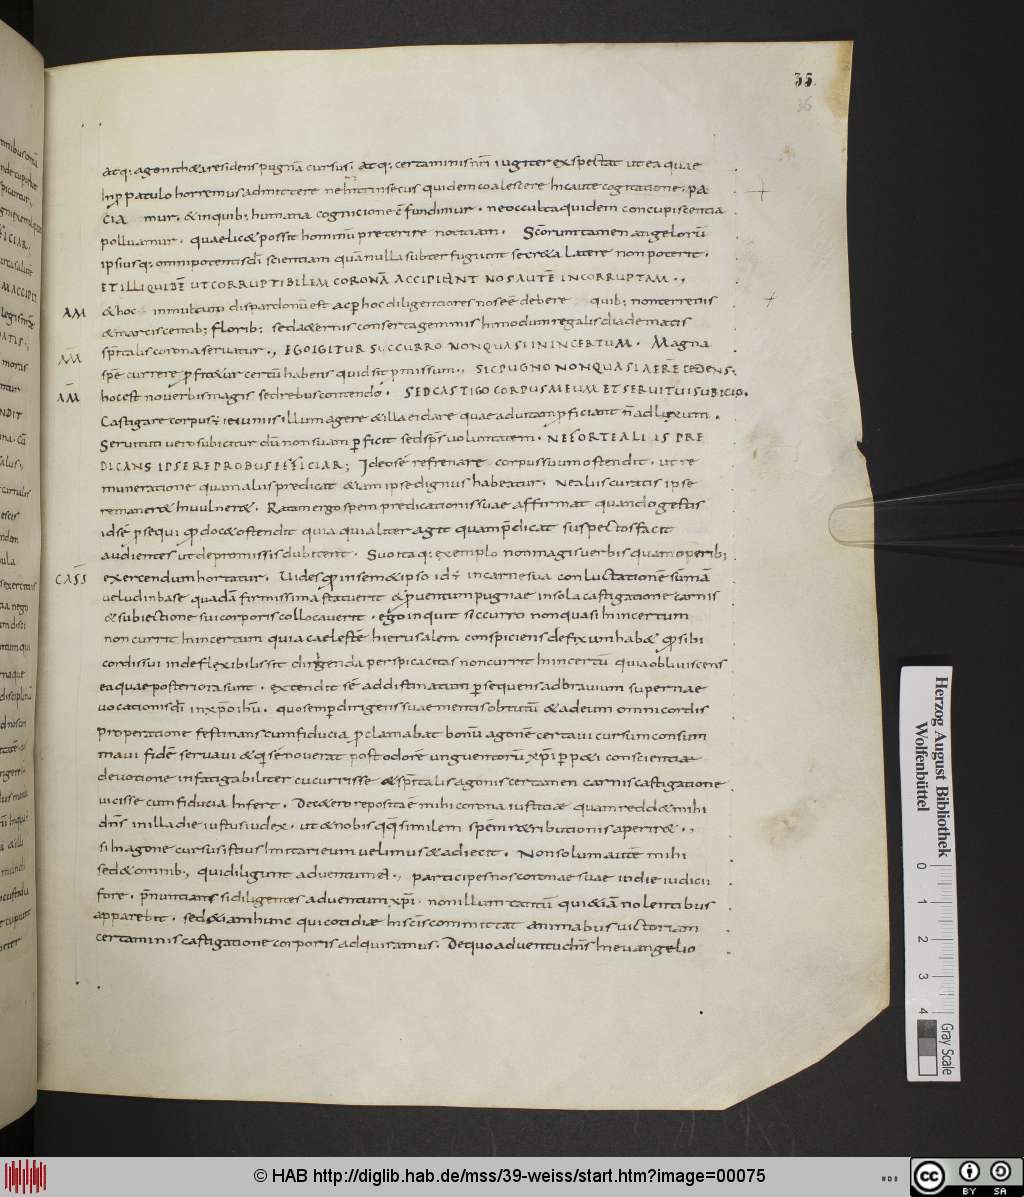 35.
36
atq; agonithetæ residens pugnā cursus. atq; certaminis nr̄i iugiter exspectat ut ea quae
in p patulo horremus admittere ne intrinsecus quidem coalescere incaute cogitatione. pa
cia mur. & in quib; humana cognicione c̄fundimur. ne occulta quidem concupiscentia
polluamur. quae lic& possit hominū preterire notitiam. Sc̄orum tamen angelorū
ipsiusq; omnipotentis dī scientiam quā nulla subterfugiunt secreta latere non poterit.
ET ILLI QUIDĒ UT CORRUPTIBILEM CORONĀ ACCIPIENT NOS AUTĒ INCORRUPTAM.,
AM &hoc in multum dispar donū est ac p hoc diligentiores nos eē debere quib; non terrenis
& marciscentib; florib; sed aeternis conserta gemmis in modum regalis diadematis
AM̄ sp̄italis corona seruatur., EGO IGITUR SIC CURRO NON QUASI IN INCERTUM. Magna
spē currere profitetur certū habens quid sit pmissum., SIC PUGNO NON QUASI AERĒ CEDENS;
AM̄ hoc est non uerbis magis sed rebus contendo. SED CASTIGO CORPUS MEUM ET SERUITUI SUBICIO.
Castigare corpus ē ieiuniis illum agere & illa ei dare quae ad uitam pficiant n̄ ad luxum.
Seruituti uero subicitur dū non suam pficit sed sps̄ uoluntatem. NE FORTE ALIIS PRE
DICANS IPSE REPROBUS EFFICIAR; Ideo sē refrenare corpus suum ostendit. ut re
muneratione quam aliis predicat &iam ipse dignus habeatur. Ne aliis curatis ipse
remaneret in uulnere. Ratam ergo spem predicationis suae affirmat quando gestis
id sē psequi qđ doc& ostendit quia qui aliter agit quam p̄dicat suspectos facit
audientes ut de promissis dubitent. Suo itaq; exemplo non magis uerbis quam operib;
CASS̄ exercendum hortatur. Uides qđ in sem&ipso id ē in carne sua conluctationē summā
uelud in base quadā firmissima statuerit & puentum pugnae in sola castigatione carnis
& subiectione sui corporis collocauerit. ego inquit sic curro non quasi in incertum
non currit in incertum quia caelestē hierusalem conspiciens defixum hab& qđ sibi
cordis sui indeflexibilis sit dirigenda perspicacitas non currit in incertū quia obliuiscens
ea quae posteriora sunt. extendit sē ad distinatum psequens ad brauium supernae
uocationis dī in xp̄o ihū. quo semp dirigens suae mentis obtutū & ad eum omni cordis
properatione festinans cum fiducia pclamabat bonū agonē certaui cursum consum
maui fidē seruaui & q sē nouerat post odorē unguentorū xp̄i p p&i conscientiæ
deuotione infatigabiliter cucurrisse & sp̄italis agonis certamen carnis castigatione
uicisse cum fiducia infert. De cetero reposita ē mihi corona iustitiæ quam redd& mihi
dn̄s in illa die iustus iudex. ut & nobis qq̄ similem spēm retributionis aperiret.,
si in agone cursus istius imitari eum uelimus & adiecit. Non solum autē mihi
sed & omnib; qui diligunt aduentum ei., participes nos coronae suae in die iudicii
fore. p̄nuntians si diligentes aduentum xp̄i. non illum tantū qui &iā nolentibus
apparebit. sed &iam hunc qui cotidiæ in sc̄is committat animabus uictoriam
certaminis castigatione corporis adquiramus. De quo aduentu dn̄s in euangelio
Herzog August Bibliothek
Wolfenbüttel
0 1 2 3 4
Gray Scale
© HAB http://diglib.hab.de/mss/39-weiss/start.htm?image=00075
cc BY SA